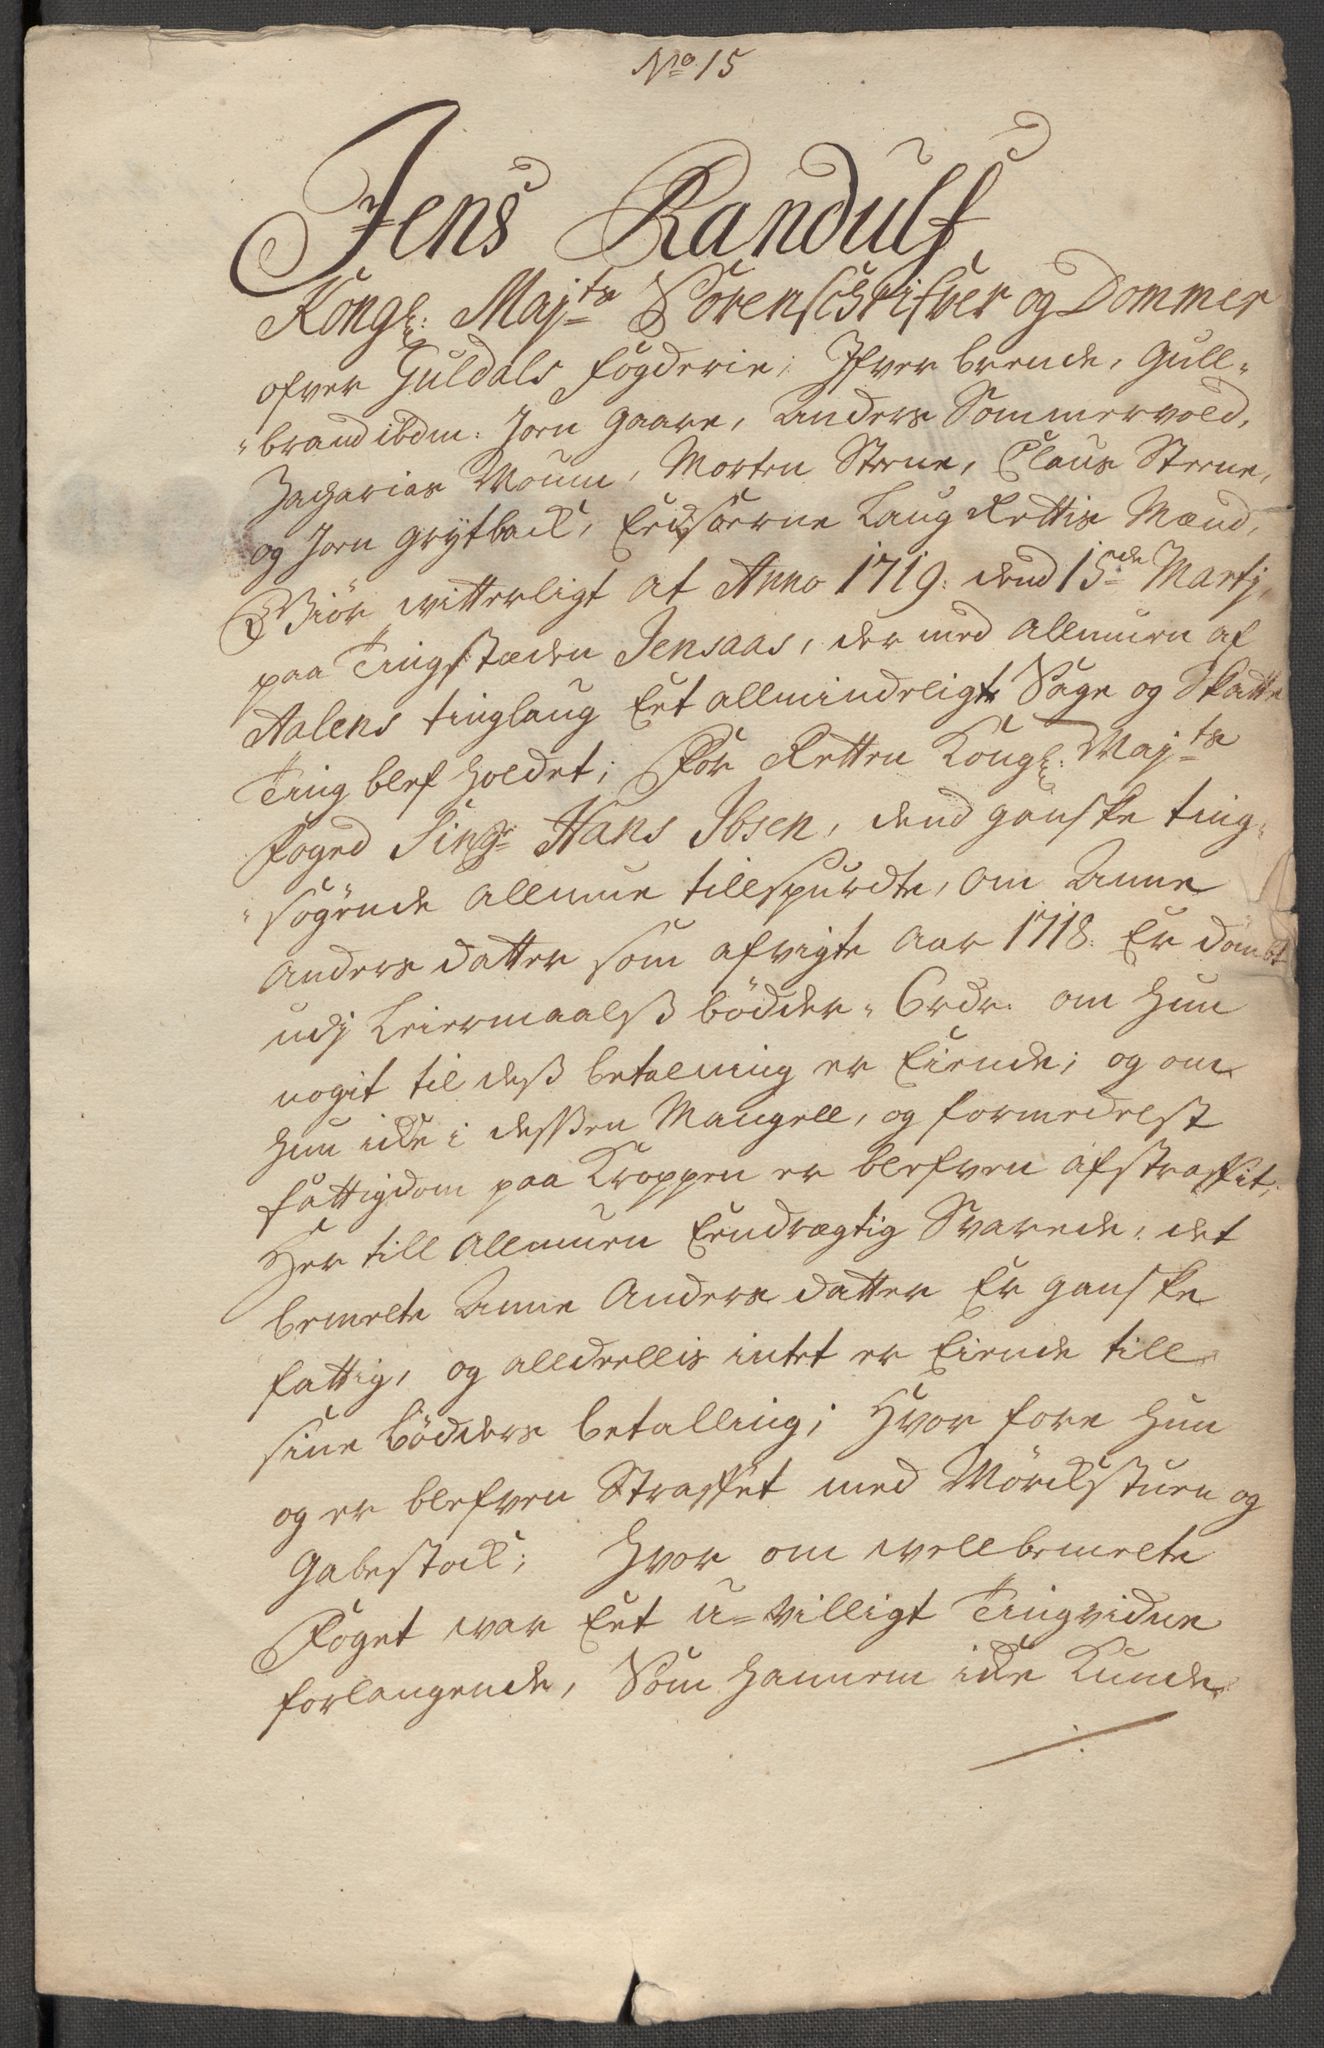 No 15
Jens Randulf
Kongl: Majts Sorenschrifver og Dommer
ofver Guldals fogderie, Ifver brende, Gull-
-brand ibdm: Joen Gaare, Anders Sommervold,
Zacharias Moum, Morten Steene, Claus Steene,
og Joen Grytback, Eedsoerne Laug Rettis Mænd,
Giör witterligt at Anno 1719: dend 15de Martj,
paa Tingstæden Jensaas, der med Allmuen af
Aalens tinglaug Eet allmindeligt Sage og Skatte
Ting blef holdet; For Retten Kongl: Majts
Foged Sing:r Hans Ibsen, dend ganske ting-
-sögende Allmue tillspurdte, om Anne
Anders datter som afvigte Aar 1718: Er dömbt
udj Leiermaalsß bödder, 6 rdr. om hun
nogit til deß betalning er Eiende; og om
hun icke i deßen Mangell, og formedelst
fattigdom paa Kroppen er blefven afstraffit,
Her till Allmuen Eendrægtig Svarede, det
bemelte Anne Anders datter Er ganske
fattig, og alldeellis intet er Eiende till
sine Bödders betalling; Hvor fore hun
og er blefven Straffet med Mörckstuen og
Gabestock; Hvor om wellbemelte
Foget war Eet u-villigt Tingvidne
forlangende, Som hannem icke Kunde